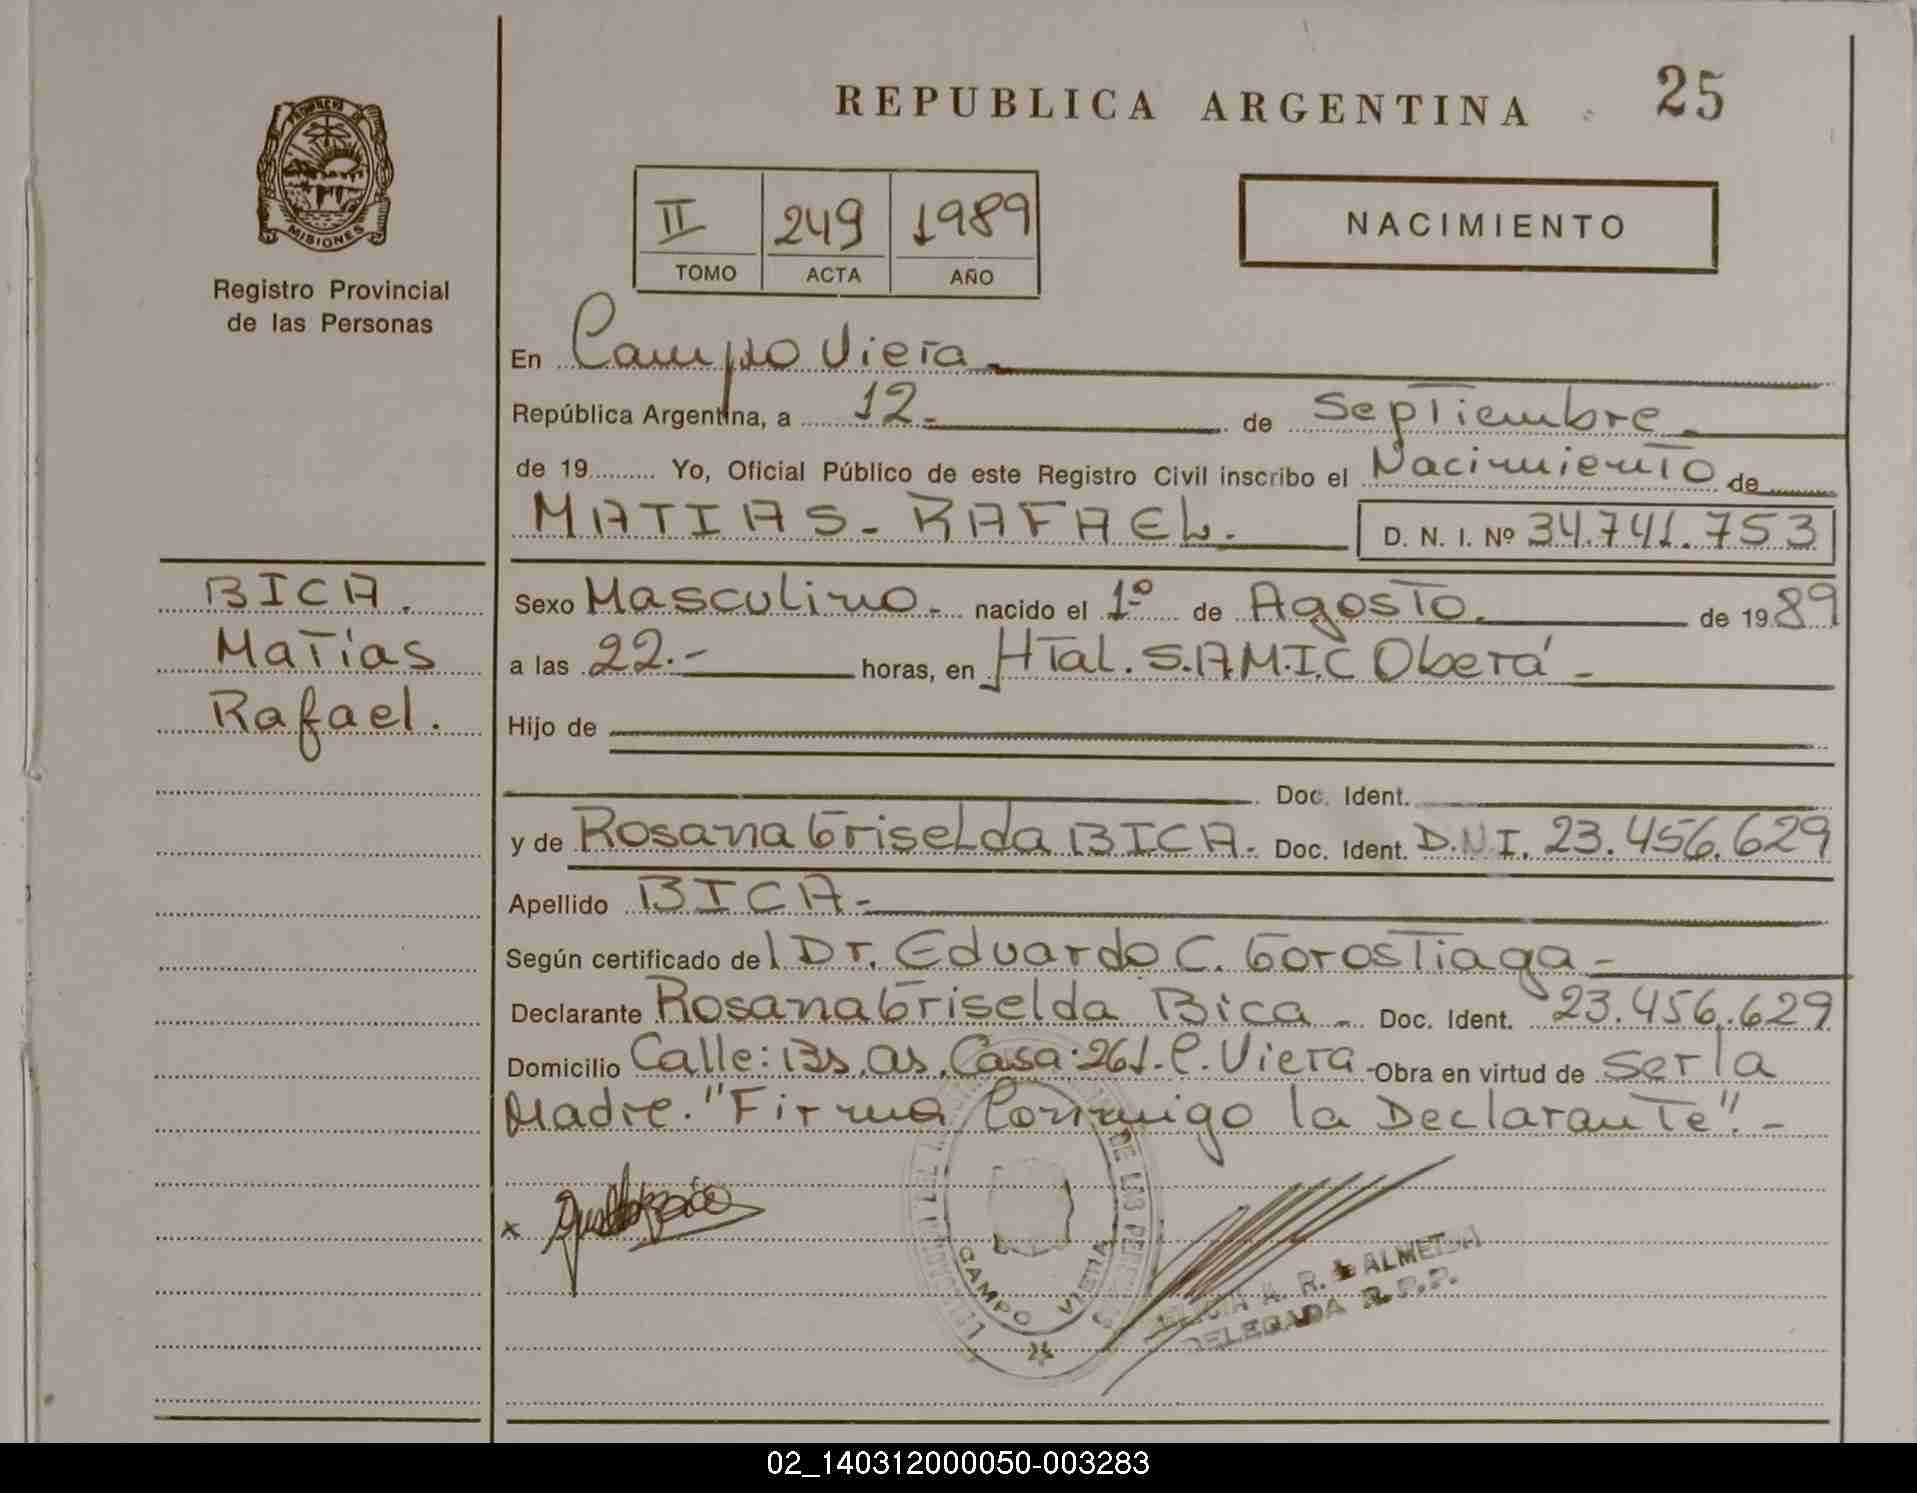 REPUBLICA ARGENTINA
25
PROVINCIA DE
MISIONES
Registro Provincial
de las Personas
II 249 1989
TOMO ACTA AÑO
NACIMIENTO
En Campo Viera
República Argentina, a 12 de Septiembre
de 19 Yo, Oficial Público de este Registro Civil inscribo el Nacimiento de
MATIAS - RAFAEL. D. N. I. Nº 34.741.753
BICA.
Matías
Rafael.
Sexo Masculino - nacido el 1º de Agosto. de 1989
a las 22.- horas, en Htal. S.A.M.I.C Oberá -
Hijo de
Doc. Ident.
y de Rosana Griselda BICA - Doc. Ident. D.N.I. 23.456.629
Apellido BICA -
Según certificado del Dr. Eduardo C. Gorostiaga -
Declarante Rosana Griselda Bica - Doc. Ident. 23.456.629
Domicilio Calle: Bs. as. Casa: 261 - C. Viera - Obra en virtud de ser la
Madre. "Firma Conmigo la Declarante". -
DE LAS
CAMPO VIERA
A. R. ALMEIDA
DELEGADA R.P.P.
02_140312000050-003283